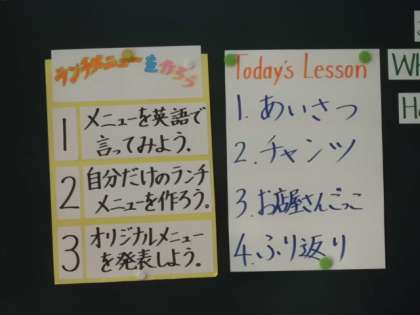 ランチメニューを作ろう
1 メニューを英語で
言ってみよう。
2 自分だけのランチ
メニューを作ろう。
3 オリジナルメニュー
を発表しよう。
Today's Lesson
1. あいさつ
2. チャンツ
3. お店屋さんごっこ
4. ふり返り